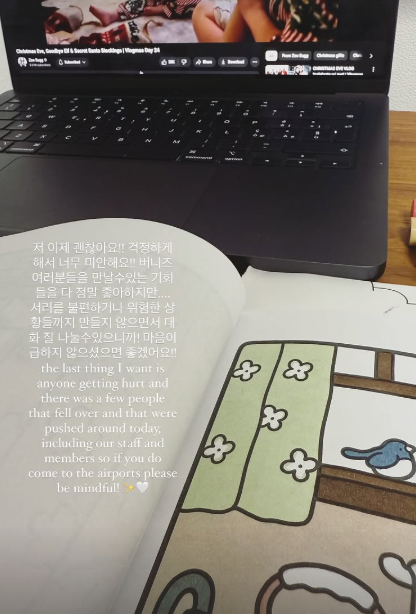 Christmas Eve, Goodbye Elf & Secret Santa Stockings | Vlogmas Day 24
Zoe Sugg
Subscribed
Share
Download
From Zoe Sugg
Christmas gifts
CHRISTMAS EVE VLOG
command
option
저 이제 괜찮아요!! 걱정하게
해서 너무 미안해요!! 버니즈
여러분들을 만날수있는 기회
들을 다 정말 좋아하지만....
서러를 불편하거나 위험한 상
황들까지 만들지 않으면서 대
화 잘 나눌수있으니까! 마음이
급하지 않으셨으면 좋겠어요!!
the last thing I want is
anyone getting hurt and
there was a few people
that fell over and that were
pushed around today,
including our staff and
members so if you do
come to the airports please
be mindful! ✨🤍